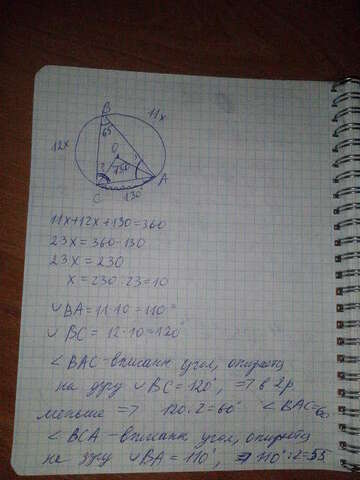 B
11x
65
12x
O
130
A
C
130
11x+12x+130=360
23x=360-130
23x=230
x=230:23=10
◡BA=11·10=110°
◡BC=12·10=120°
∠BAC-вписанн угол, опирается
на дугу ◡BC=120°, => в 2р.
меньше => 120:2=60° ∠BAC=60
∠BCA-вписанн угол, опирается
на дугу ◡BA=110°, => 110°:2=55